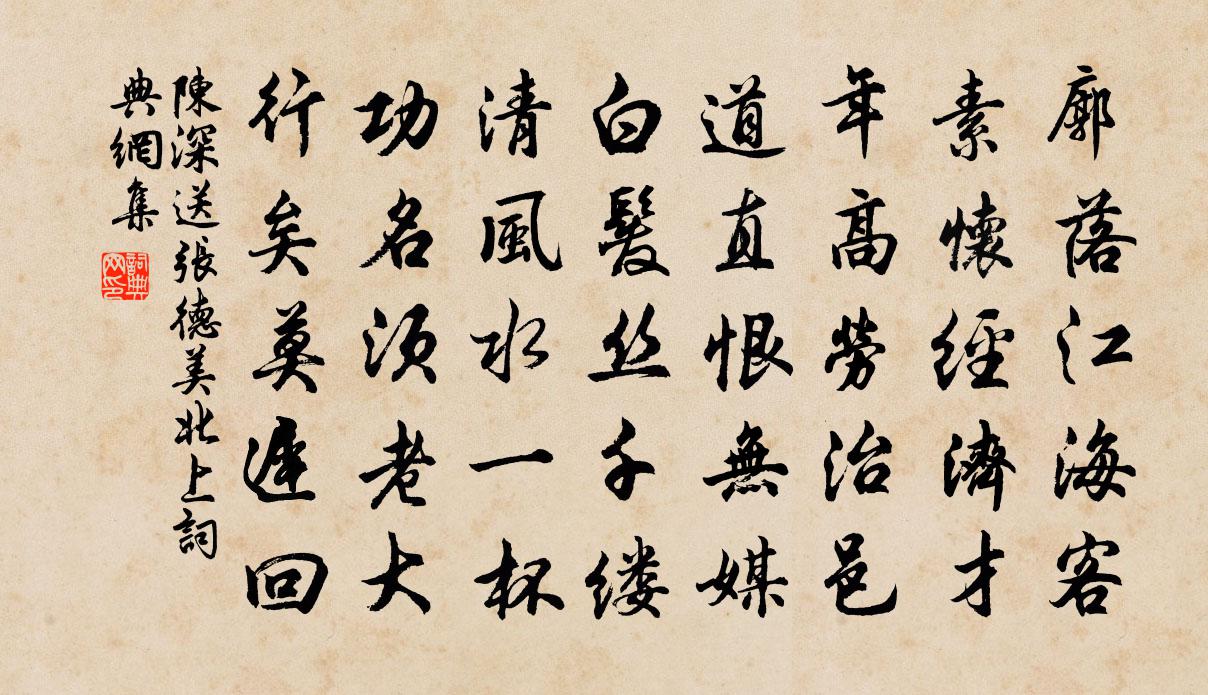 廓落江海客
素懷經濟才
年高勞治邑
道直恨無媒
白髮丝千缕
清風水一杯
功名须老大
行矣莫遲回
陳深送張德美北上詞
典網集
詞典
网印